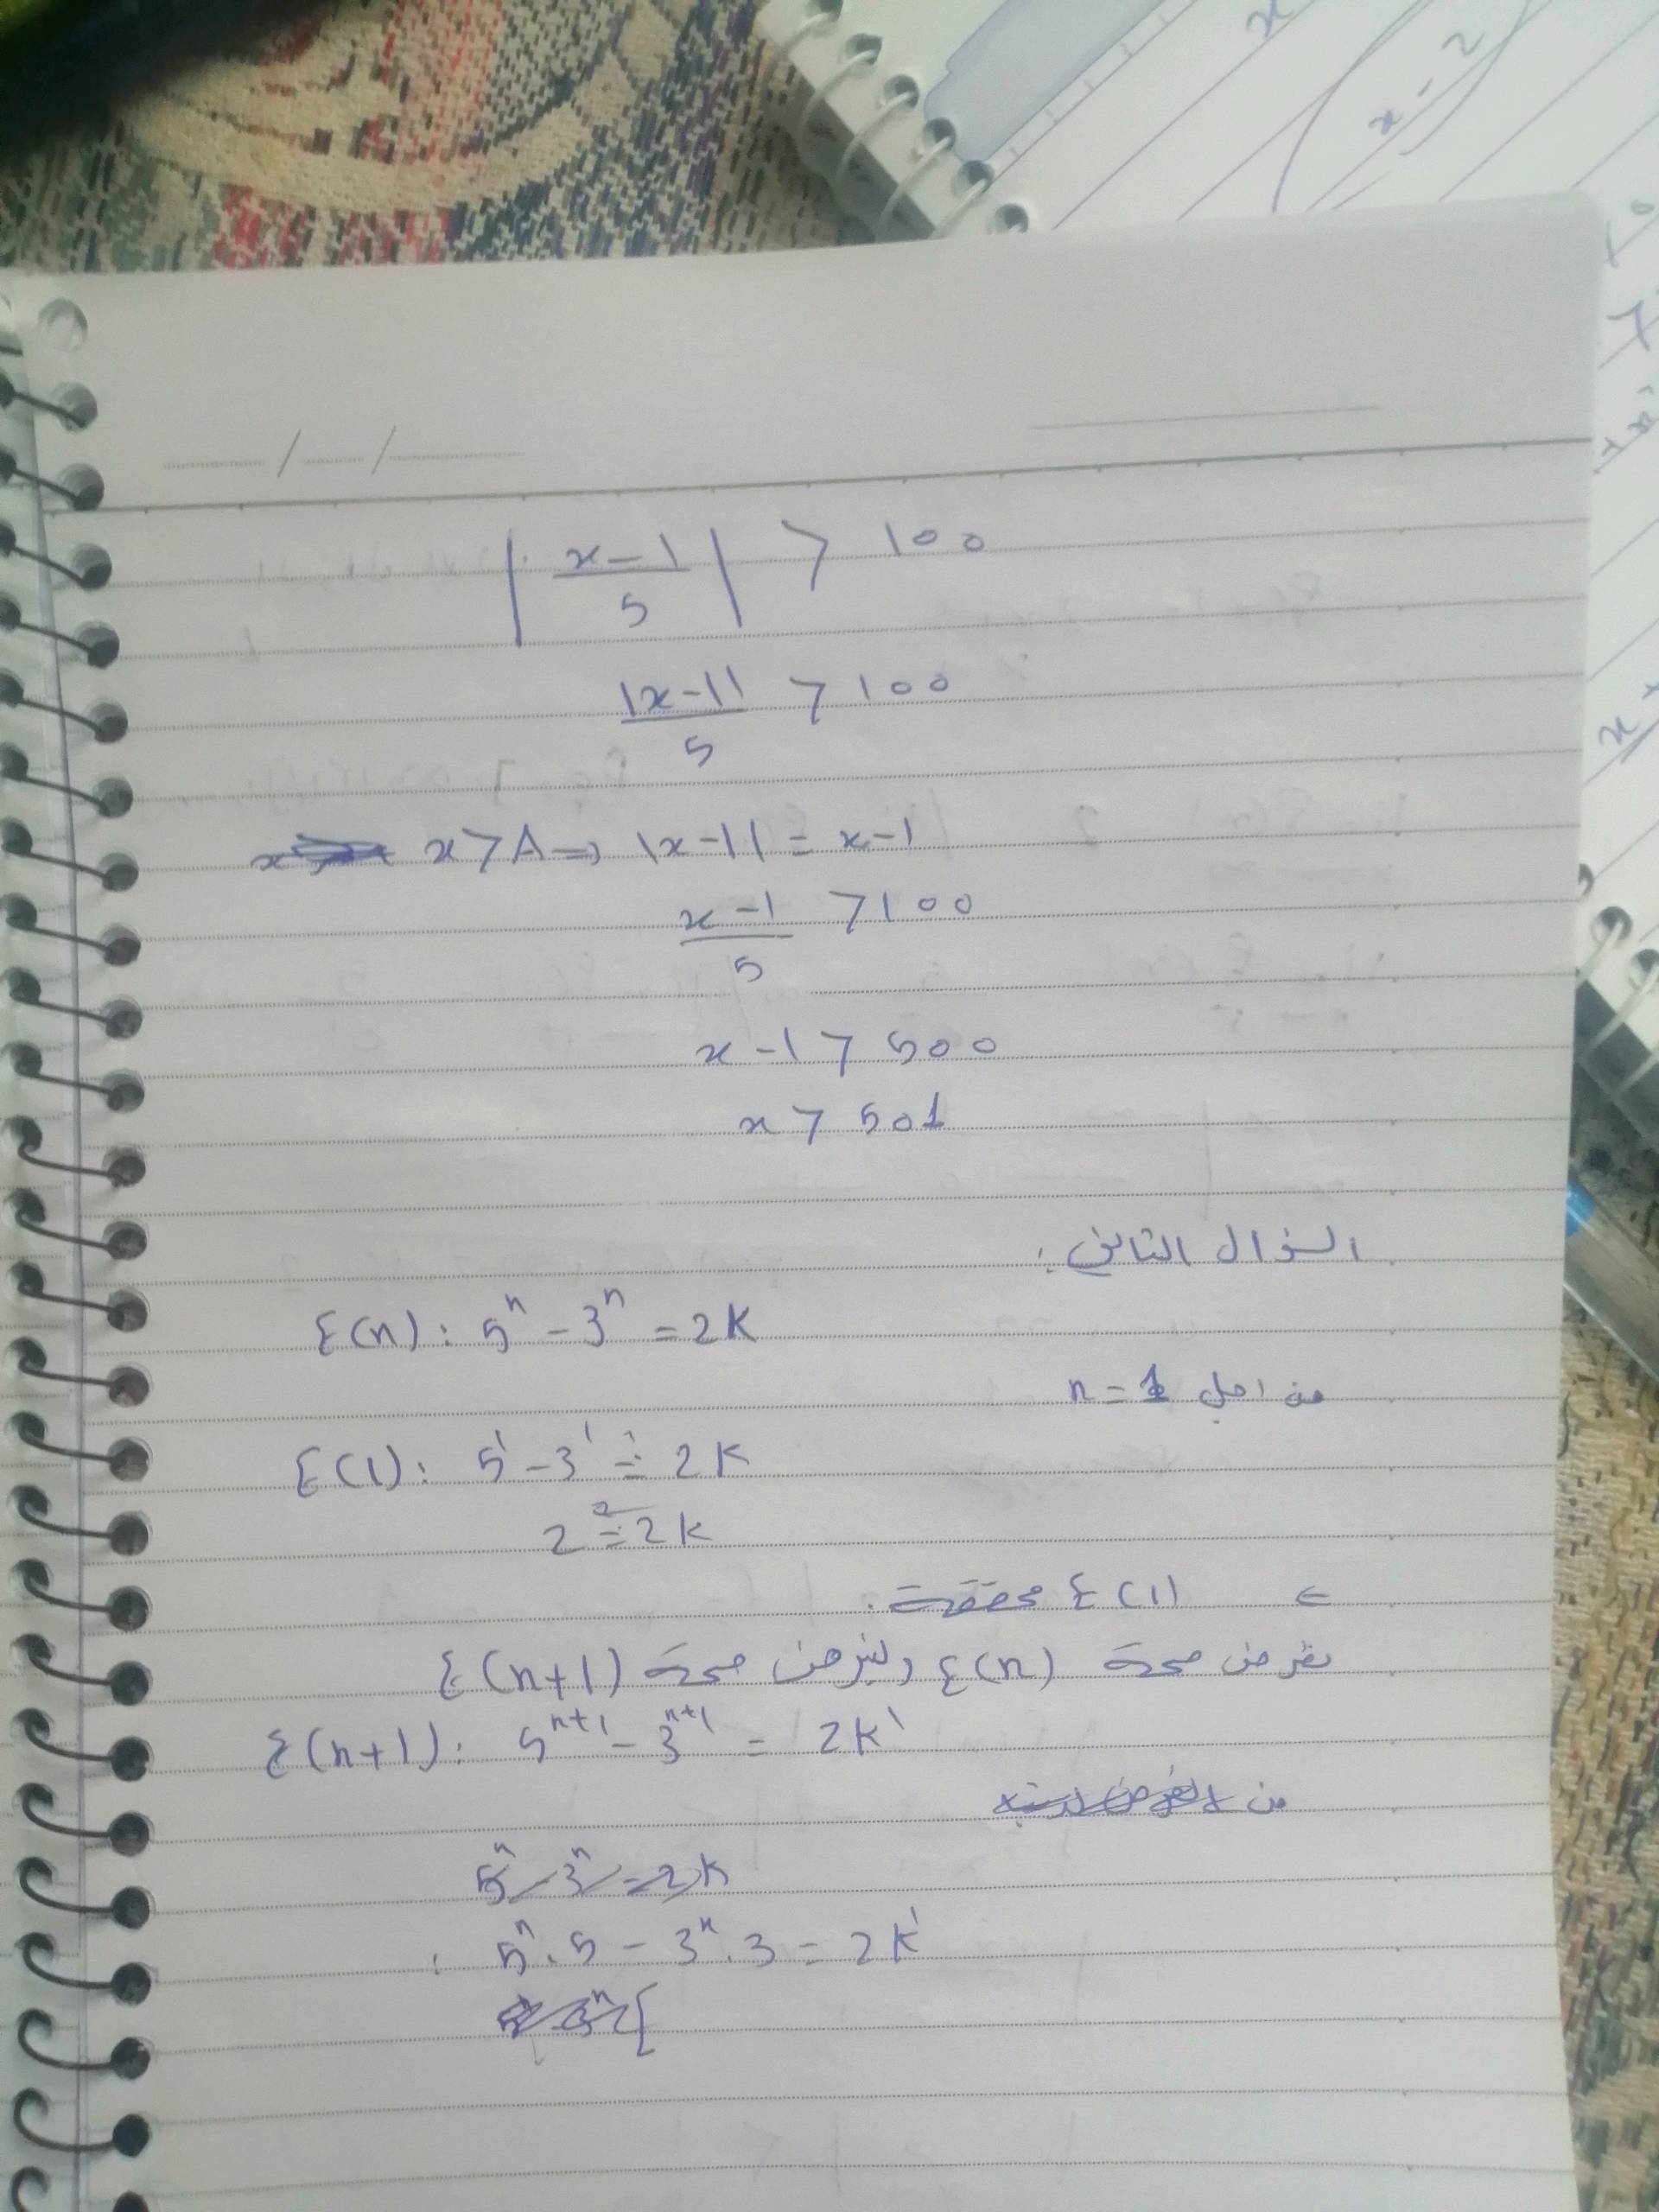 |x-1/5| > 100
|x-1|/5 > 100
x>A ⇒ |x-1| = x-1
x-1/5 > 100
x-1 > 500
x > 501
السؤال الثاني:
E(n): 5ⁿ - 3ⁿ = 2K
من اجل n = 1
E(1): 5¹ - 3¹ ≟ 2K
2 ≟ 2K
⇐ E(1) محققة.
نفرض صحة E(n) ولنبرهن صحة E(n+1)
E(n+1): 5ⁿ⁺¹ - 3ⁿ⁺¹ = 2K'
من
5ⁿ - 3ⁿ = 2K
: 5ⁿ.5 - 3ⁿ.3 = 2K'
x - 2